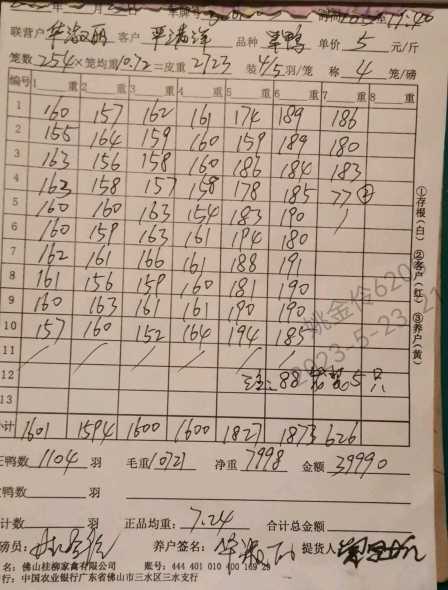 联营户 华淑丽 客户 品种 单价 5 元/斤
笼数 254 ×笼均重 10.72 =皮重 2723 装 4/5 羽/笼 称 4 笼/磅
编号 1 重 2 重 3 重 4 重 5 重 6 重 7 重 8 重
1 160 157 162 161 174 189 186
2 155 164 159 160 159 189 180
3 163 156 158 160 186 184 183
4 162 158 157 158 178 185 77
5 160 160 163 154 183 190
6 160 159 163 161 194 180
7 162 161 166 161 188 191
8 161 156 159 160 181 190
9 160 163 161 161 190 190
10 157 160 152 164 194 185
11
12 88 5 只
13
小计 1601 1594 1600 1600 1827 1873 626
正鸭数 1104 羽 毛重 10721 净重 7998 金额 39990
鸭数 羽
计数 羽 正品均重: 7.24 合计总金额
磅员: 养户签名: 提货人
名: 佛山桂柳家禽有限公司 账号: 444 401 010 400 169 29
行: 中国农业银行广东省佛山市三水区三水支行
①存根(白) ②客户(红) ③养户(黄)
姚金伶620
2023-5-23 21